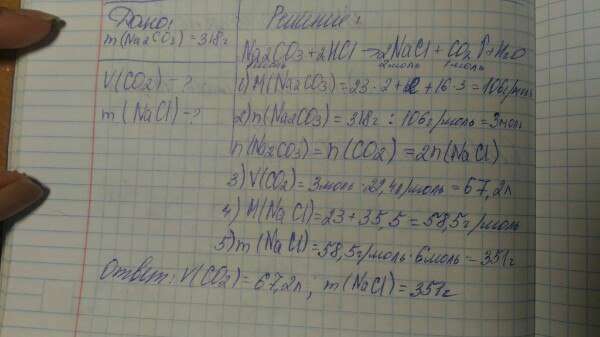 Дано:
m(Na2CO3) = 318г
V(CO2) - ?
m(NaCl) - ?
Решение:
Na2CO3 + 2HCl → 2NaCl + CO2↑ + H2O
2моль 1моль
1) M(Na2CO3) = 23·2 + 12 + 16·3 = 106г/моль
2) n(Na2CO3) = 318г : 106г/моль = 3моль
n(Na2CO3) = n(CO2) = 2n(NaCl)
3) V(CO2) = 3моль · 22,4л/моль = 67,2л
4) M(NaCl) = 23 + 35,5 = 58,5г/моль
5) m(NaCl) = 58,5г/моль · 6моль = 351г
Ответ: V(CO2) = 67,2л; m(NaCl) = 351г